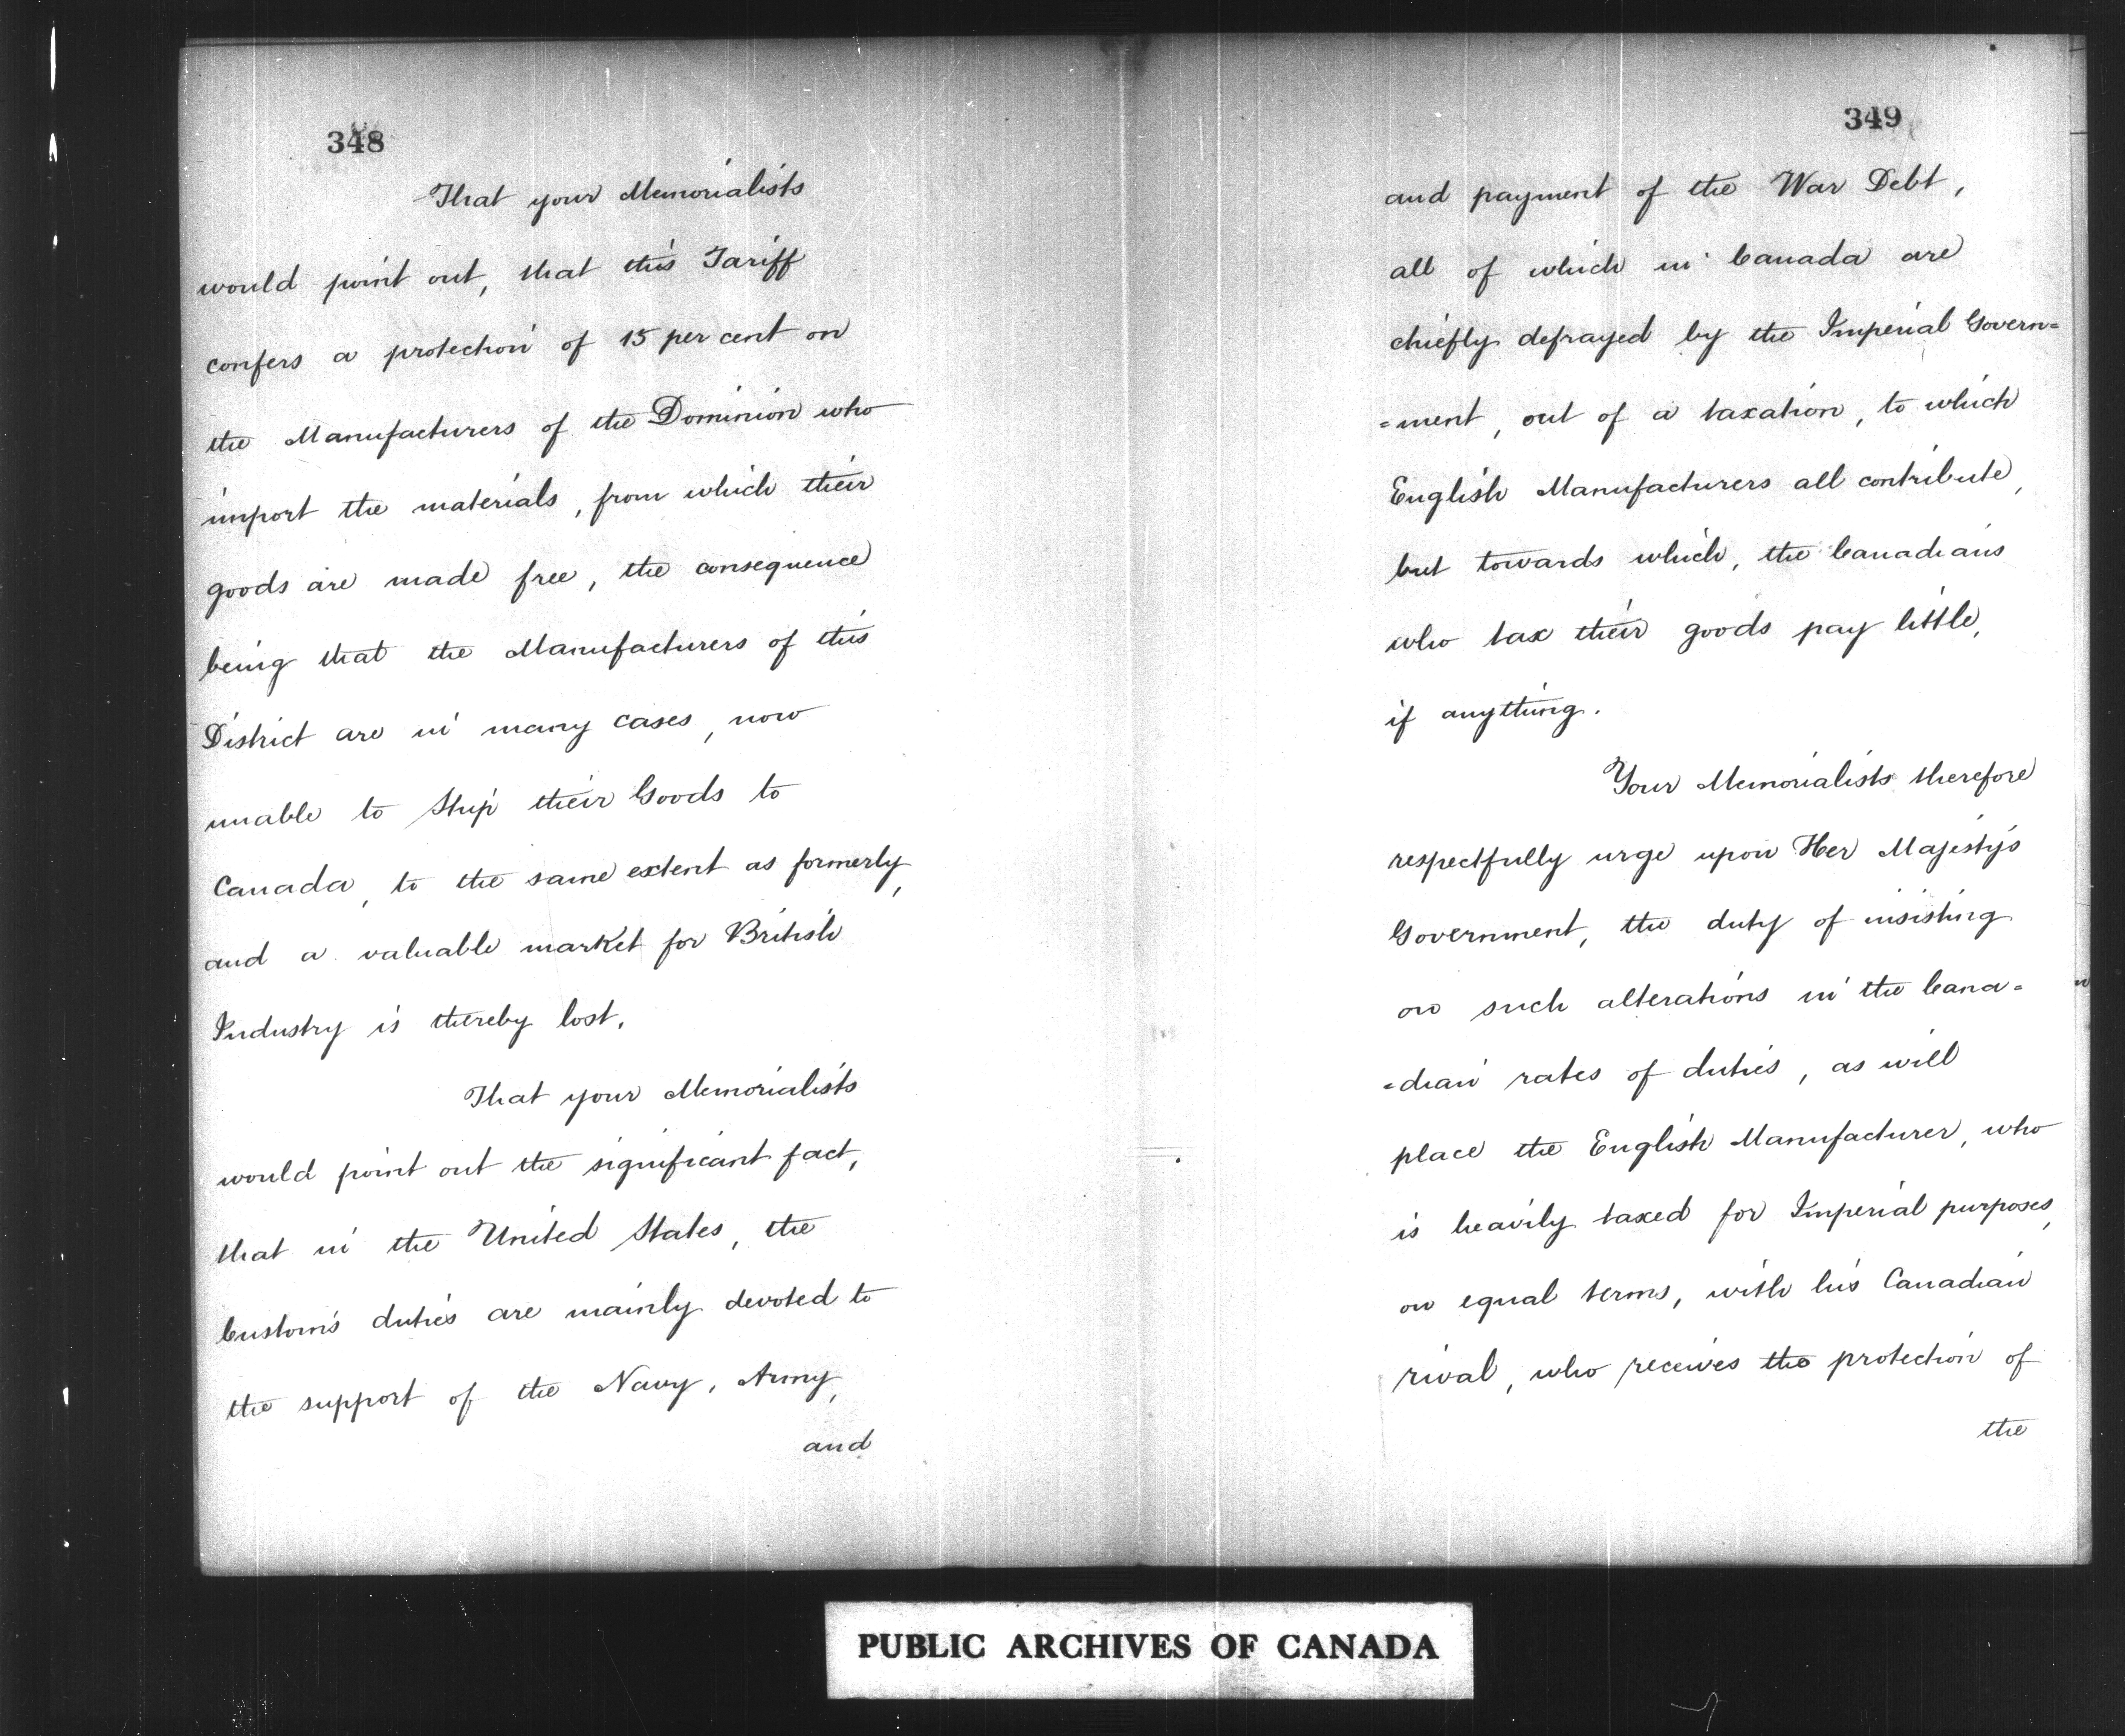 348
That your Memorialists
would point out, that this Tariff
confers a protection of 15 per cent on
the Manufacturers of the Dominion who
import the materials, from which their
goods are made free, the consequence
being that the Manufacturers of this
District are in many cases, now
unable to Ship their Goods to
Canada, to the same extent as formerly,
and a valuable market for British
Industry is thereby lost.
That your Memorialists
would point out the significant fact,
that in the United States, the
Customs duties are mainly devoted to
the support of the Navy, Army,
and
349
and payment of the War Debt,
all of which in Canada are
chiefly defrayed by the Imperial Govern=
=ment, out of a taxation, to which
English Manufacturers all contribute,
but towards which, the Canadians
who tax their goods pay little,
if anything.
Your Memorialists therefore
respectfully urge upon Her Majesty's
Government, the duty of insisting
on such alterations in the Cana=
=dian rates of duties, as will
place the English Manufacturer, who
is heavily taxed for Imperial purposes,
on equal terms, with his Canadian
rival, who receives the protection of
the
PUBLIC ARCHIVES OF CANADA